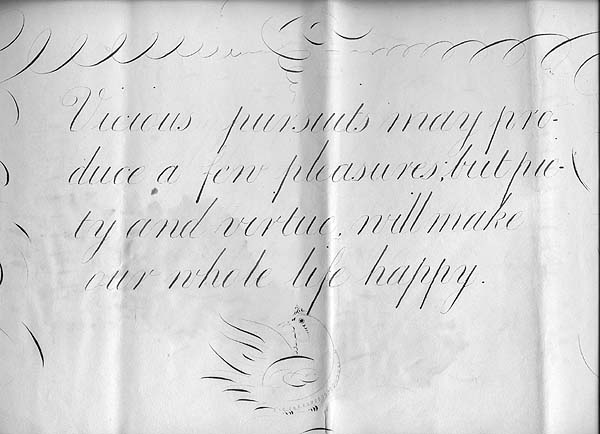 Vicious pursuits may pro-
duce a few pleasures; but pie-
ty and vertue, will make
our whole life happy.